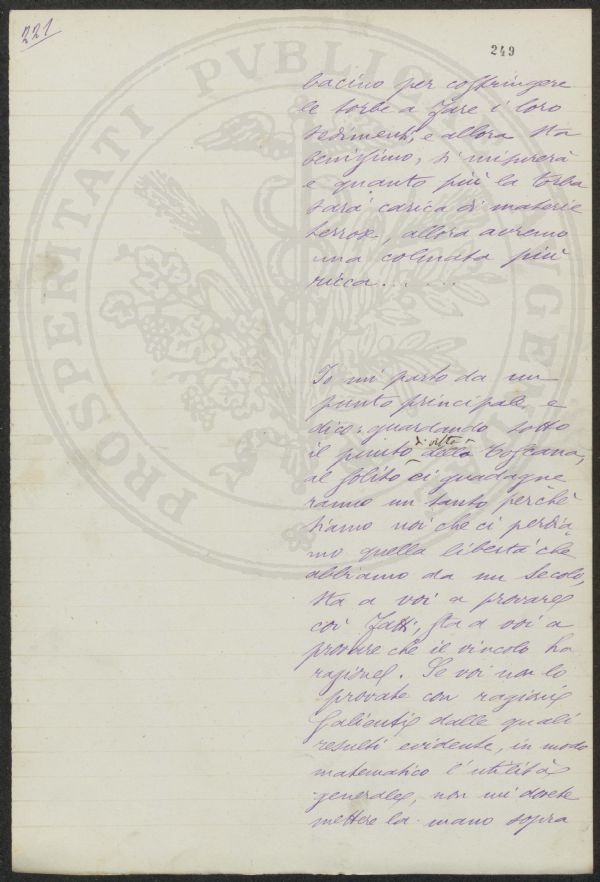 221
249
bacino per costringere
le torbe a fare i loro
sedimenti, e allora sta
benissimo, si misurerà
e quanto più la torba
sarà carica di materie
terrose, allora avremo
una colmata più
ricca . . . . . .
Io mi parto da un
punto principale e
dico: guardando sotto
di vista
il punto della Toscana,
al solito ci guadagne
ranno un tanto perchè
siamo noi che ci perdia
mo quella libertà che
abbiamo da un secolo,
sta a voi a provare
coi fatti, sta a voi a
provare che il vincolo ha
ragione. Se voi non lo
provate con ragioni
salienti dalle quali
resulti evidente, in modo
matematico l'utilità
generale, non mi dovete
mettere la mano sopra
PROSPERITATI PUBLICAE